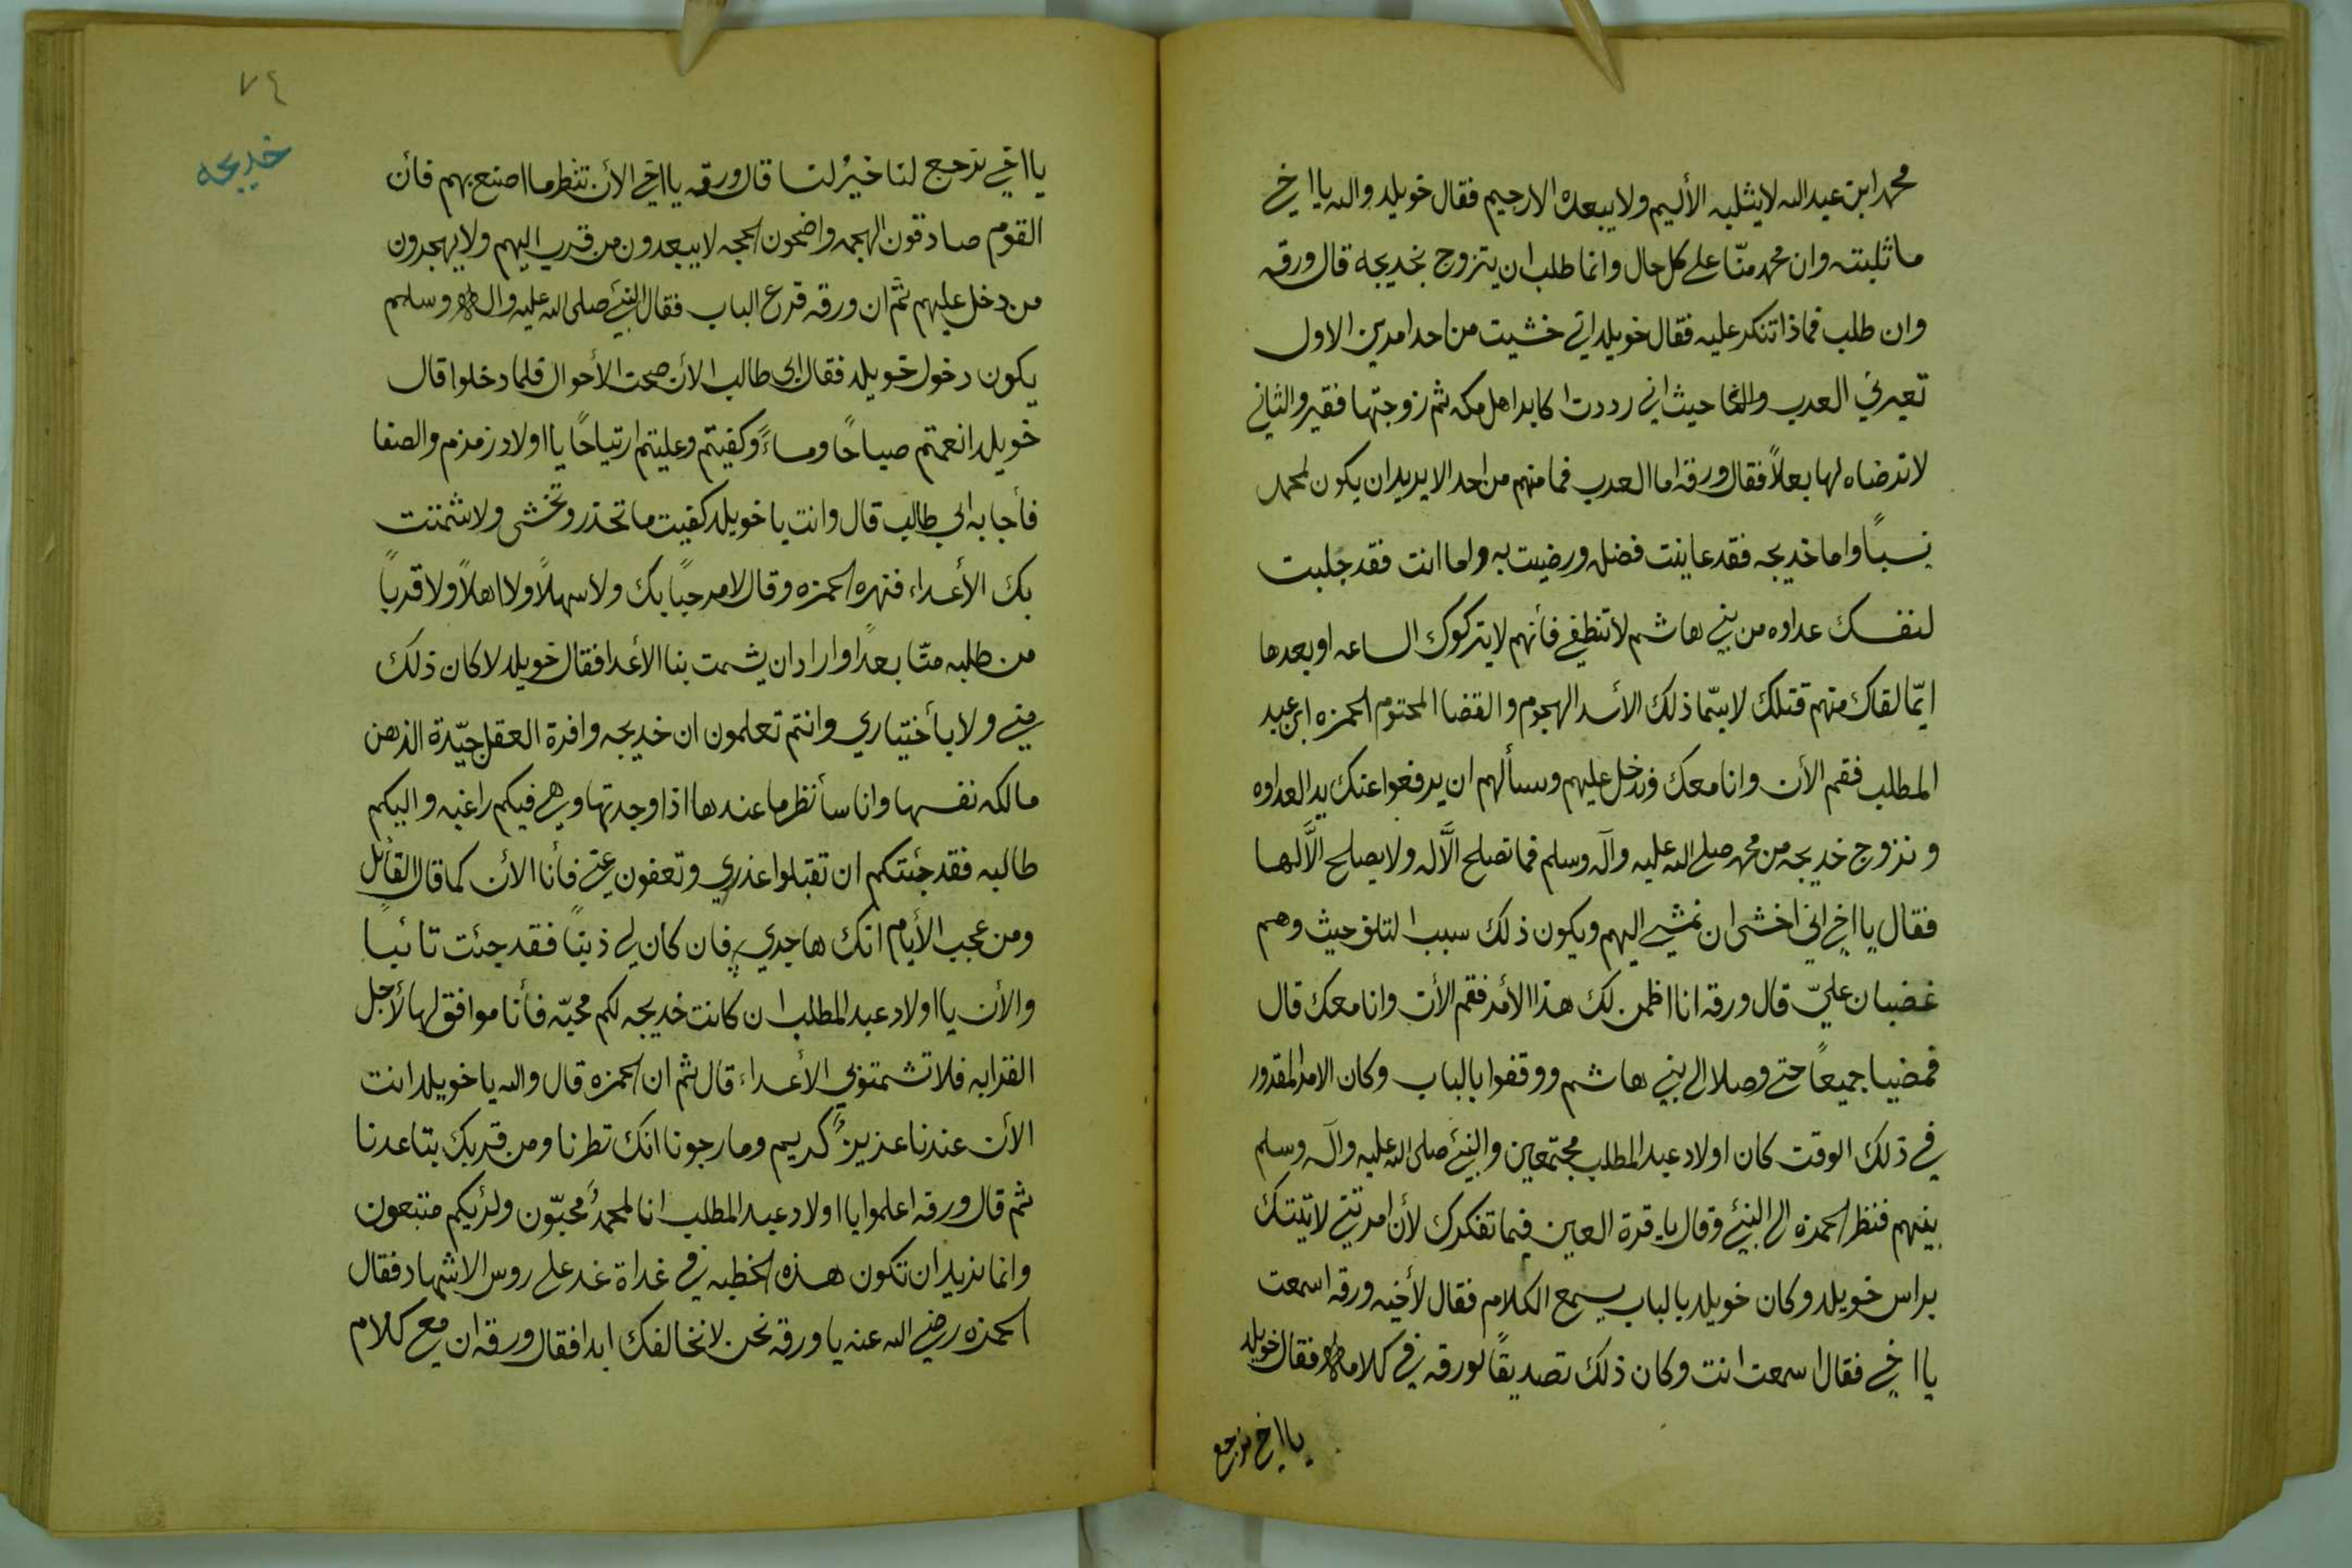 محمد ابن عبد الله لا يثلبه الا لئيم ولا يبعده الا رجيم فقال خويلد والله يا اخي
ما ثلبته وان محمد منّا على كل حال وانما طلب ان يتزوج بخديجه قال ورقه
وان طلب فماذا تنكر عليه فقال خويلد اني خشيت من احد امرين الاول
تعيرني العرب حيث اني رددت اكابر اهل مكه ثم زوجتها فقير والثاني
لا ترضاه لها بعلاً فقال ورقه اما العرب فما منهم من احد الا يريد ان يكون لمحمد
نسباً واما خديجه فقد عاينت فضله ورضيت به واما انت فقد جلبت
لنفسك عداوه من بني هاشم لا تنطفي فأنهم لا يتركوك الساعه او بعدها
ايّما لقاك منهم قتلك لا سيّما ذلك الأسد الهجوم والقضا المحتوم الحمزه ابن عبد
المطلب فقم الأن وانا معك وندخل عليهم ونسألهم ان يرفعوا عنك يد العداوه
ونزوج خديجه من محمد صلى الله عليه وآله وسلم فما تصلح الّا له ولا يصلح الّا لها
فقال يا اخي اني اخشى ان نمشي اليهم ويكون ذلك سببا لتلفي حيث وهم
غضبان عليّ قال ورقه انا اظمن لك هذا الأمر فقم الأن وانا معك قال
فمضيا جميعاً حتى وصلا الى بني هاشم ووقفوا بالباب وكان الامر المقدور
في ذلك الوقت كان اولاد عبد المطلب مجتمعين والنبي صلى الله عليه وآله وسلم
بينهم فنظر الحمزه الى النبي وقال يا قرة العين فيما تفكرك لأن امرتني لاتيتك
براس خويلد وكان خويلد بالباب يسمع الكلام فقال لأخيه ورقه اسمعت
يا اخي فقال اسمعت انت وكان ذلك تصديقاً لورقه في كلامه فقال خويلد
يا اخي نرجع
٧٤
خديجه
يا اخي نرجع لنا خيرُ لنا قال ورقه يا اخي الأن تنظر ما اصنع بهم فأن
القوم صادقون الهجه واضحون الحجه لا يبعدون من قرب اليهم ولا يهجرون
من دخل عليهم ثم ان ورقه قرع الباب فقال النبي صلى الله عليه واله وسلم
يكون دخول خويلد فقال ابي طالب الأن صحت الأحوال فلما دخلوا قال
خويلد انعمتم صباحًا ومساءً وكفيتم وعليتم ارتياحًا يا اولاد زمزم والصفا
فأجابه ابي طالب قال وانت يا خويلد كفيت ما تحذر وتخشى ولا شمتت
بك الأعداء فنهره الحمزه وقال لا مرحباً بك ولا سهلاً ولا اهلاً ولا قرباً
من طلبه منّا بعداً واراد ان يشمت بنا الأعدا فقال خويلد لا كان ذلك
مني ولا بأختياري وانتم تعلمون ان خديجه وافرة العقل جيّدة الذهن
مالكه نفسها وانا سأنظر ما عندها اذا وجدتها وهي فيكم راغبه واليكم
طالبه فقد جئتكم ان تقبلوا عذري وتعفون عني فأنا الأن كما قال القائل
ومن عجب الأيام انك هاجري فان كان لي ذنباً فقد جئت تائباً
والأن يا اولاد عبد المطلب ان كانت خديجه لكم محبّه فأنا موافق لها لأجل
القرابه فلا تشمتوا بي الأعداء قال ثم ان الحمزه قال والله يا خويلد انت
الأن عندنا عزيزٌ كريم وما رجونا انك تطرنا ومن قربك بتاعدنا
ثم قال ورقه اعلموا يا اولاد عبد المطلب انا لمحمدٍ محبّون ولرئيكم متبعون
وانما نريد ان تكون هذه الخطبه في غداة غد على روس الاشهاد فقال
الحمزه رضي الله عنه يا ورقه نحن لا نخالفك ابدا فقال ورقه ان معي كلام